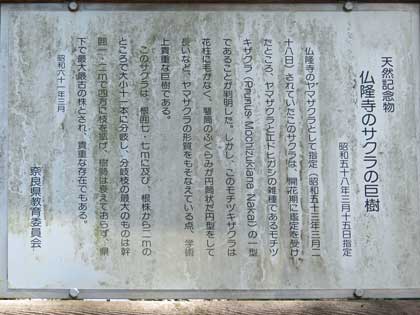 天然記念物
仏隆寺のサクラの巨樹
昭和五十八年三月十五日指定
仏隆寺のヤマザクラとして指定（昭和五十三年三月二
十八日）されていたこのサクラは、開花期に鑑定を受け
たところ、ヤマザクラとエドヒガンの雑種であるモチヅ
キザクラ（Prunus Mochizukiana Nakai）の一型
であることが判明した。しかし、このモチヅキザクラは
花柱に毛がなく、萼筒のふくらみが円筒状だ円型をして
長いなど、ヤマザクラの形質をもそなえている点、学術
上貴重な巨樹である。
このサクラは、根囲七・七mに及び、根株から二mの
ところで大小十一本に分岐し、分岐枝の最大のものは幹
囲一・二mで四方に枝を拡げ、樹勢は衰えておらず、県
下で最大最古の株とされ、貴重な存在でもある。
昭和六十一年三月
奈良県教育委員会